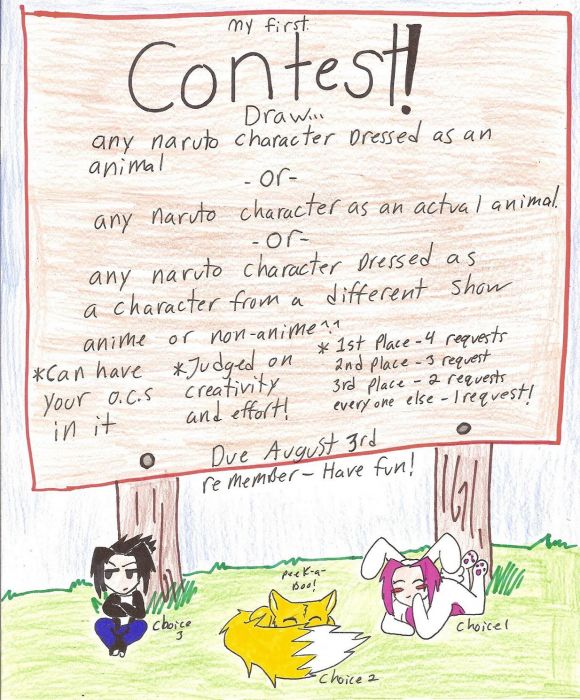 my first
Contest!
Draw...
any naruto character Dressed as an
animal
- or -
any naruto character as an actual animal.
- or -
any naruto character Dressed as
a character from a different show
anime or non-anime^^
*Can have
your o.c.s
in it
*Judged on
creativity
and effort!
* 1st Place - 4 requests
2nd Place - 3 request
3rd Place - 2 requests
every one else - 1 request!
Due August 3rd
remember - Have fun!
choice
3
peek-a-
Boo!
Choice 2
Choice 1